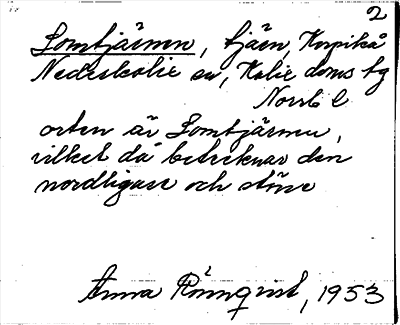 2
Lomtjärnen, tjärn, Korpikå
Nederkalix sn, Kalix doms tg
Norrb l
orten är Lomtjärnen,
vilket då betecknar den
nordligare och större
Anna Rönnqvist, 1953